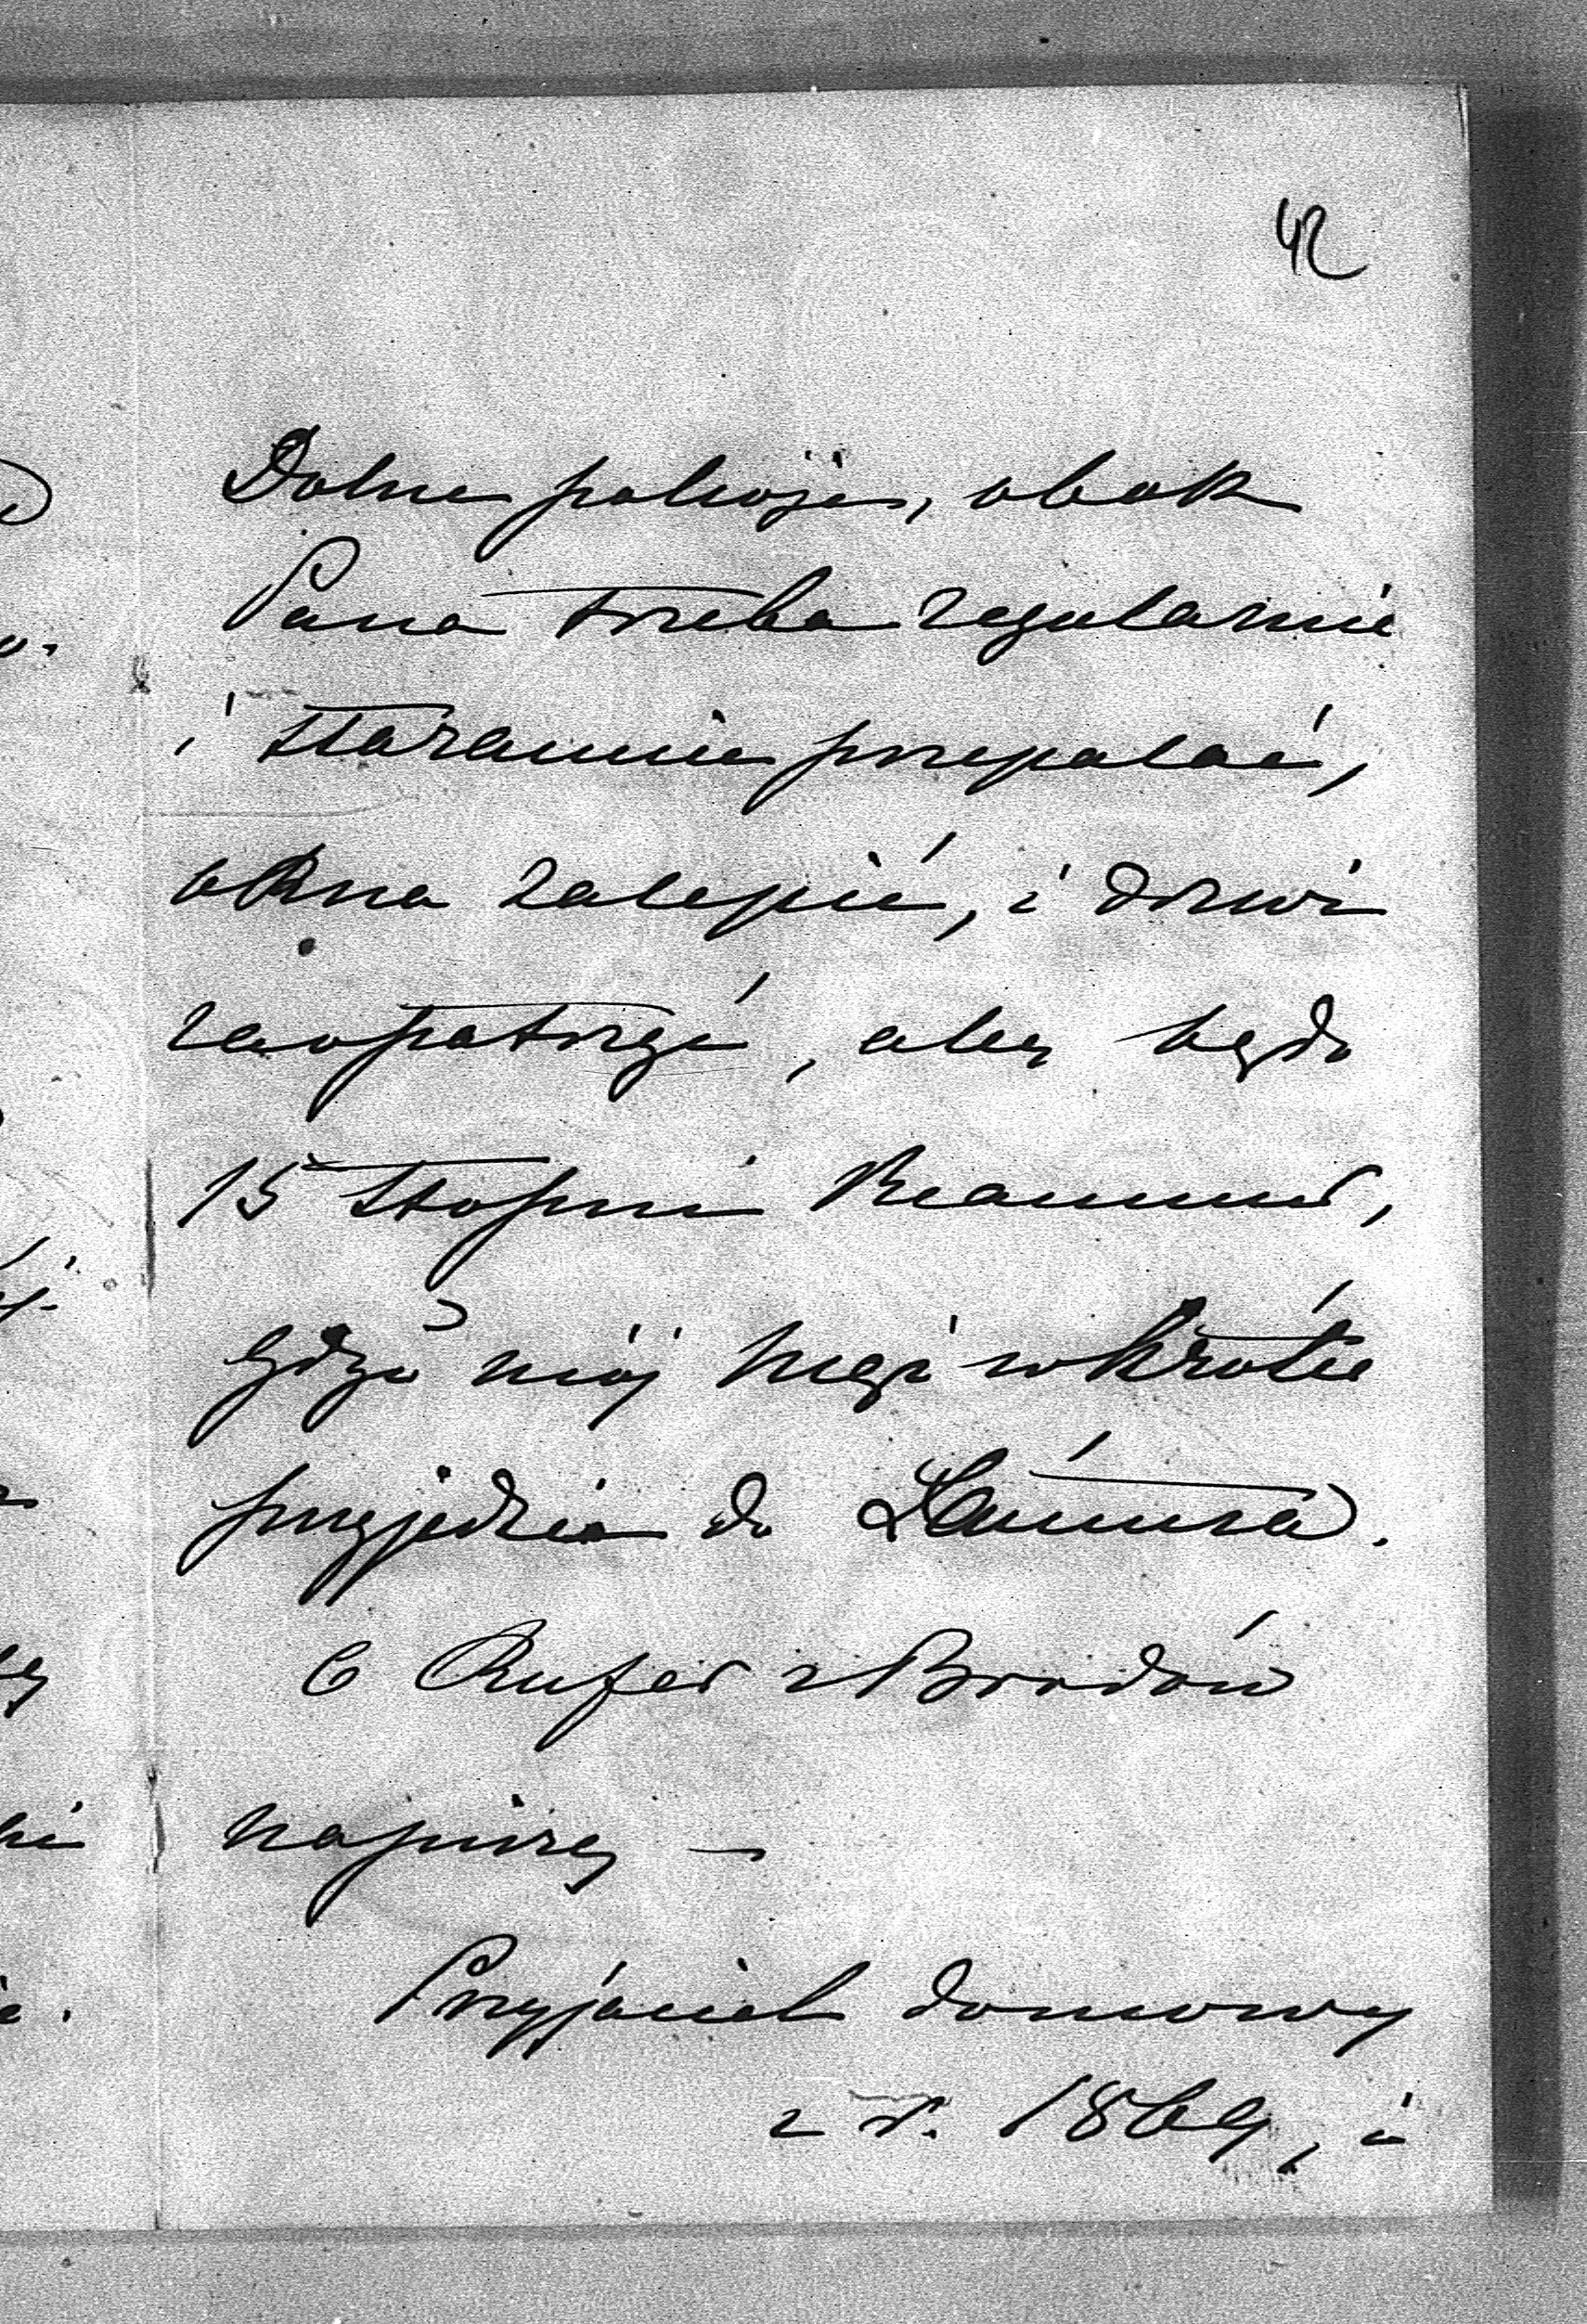 42
Dolne pokoje, obok
Pana trzeba regularnie
i starannie przepalać,
okna zalepić, i drzwi
zaopatrzyć, aby było
15 stopni Reaumur,
gdyż mój mąż wkrótce
przyjedzie do Łańcuta.
O Rufer z Brodów
napiszę —
Przyjaciel domowy
z r. 1869, i